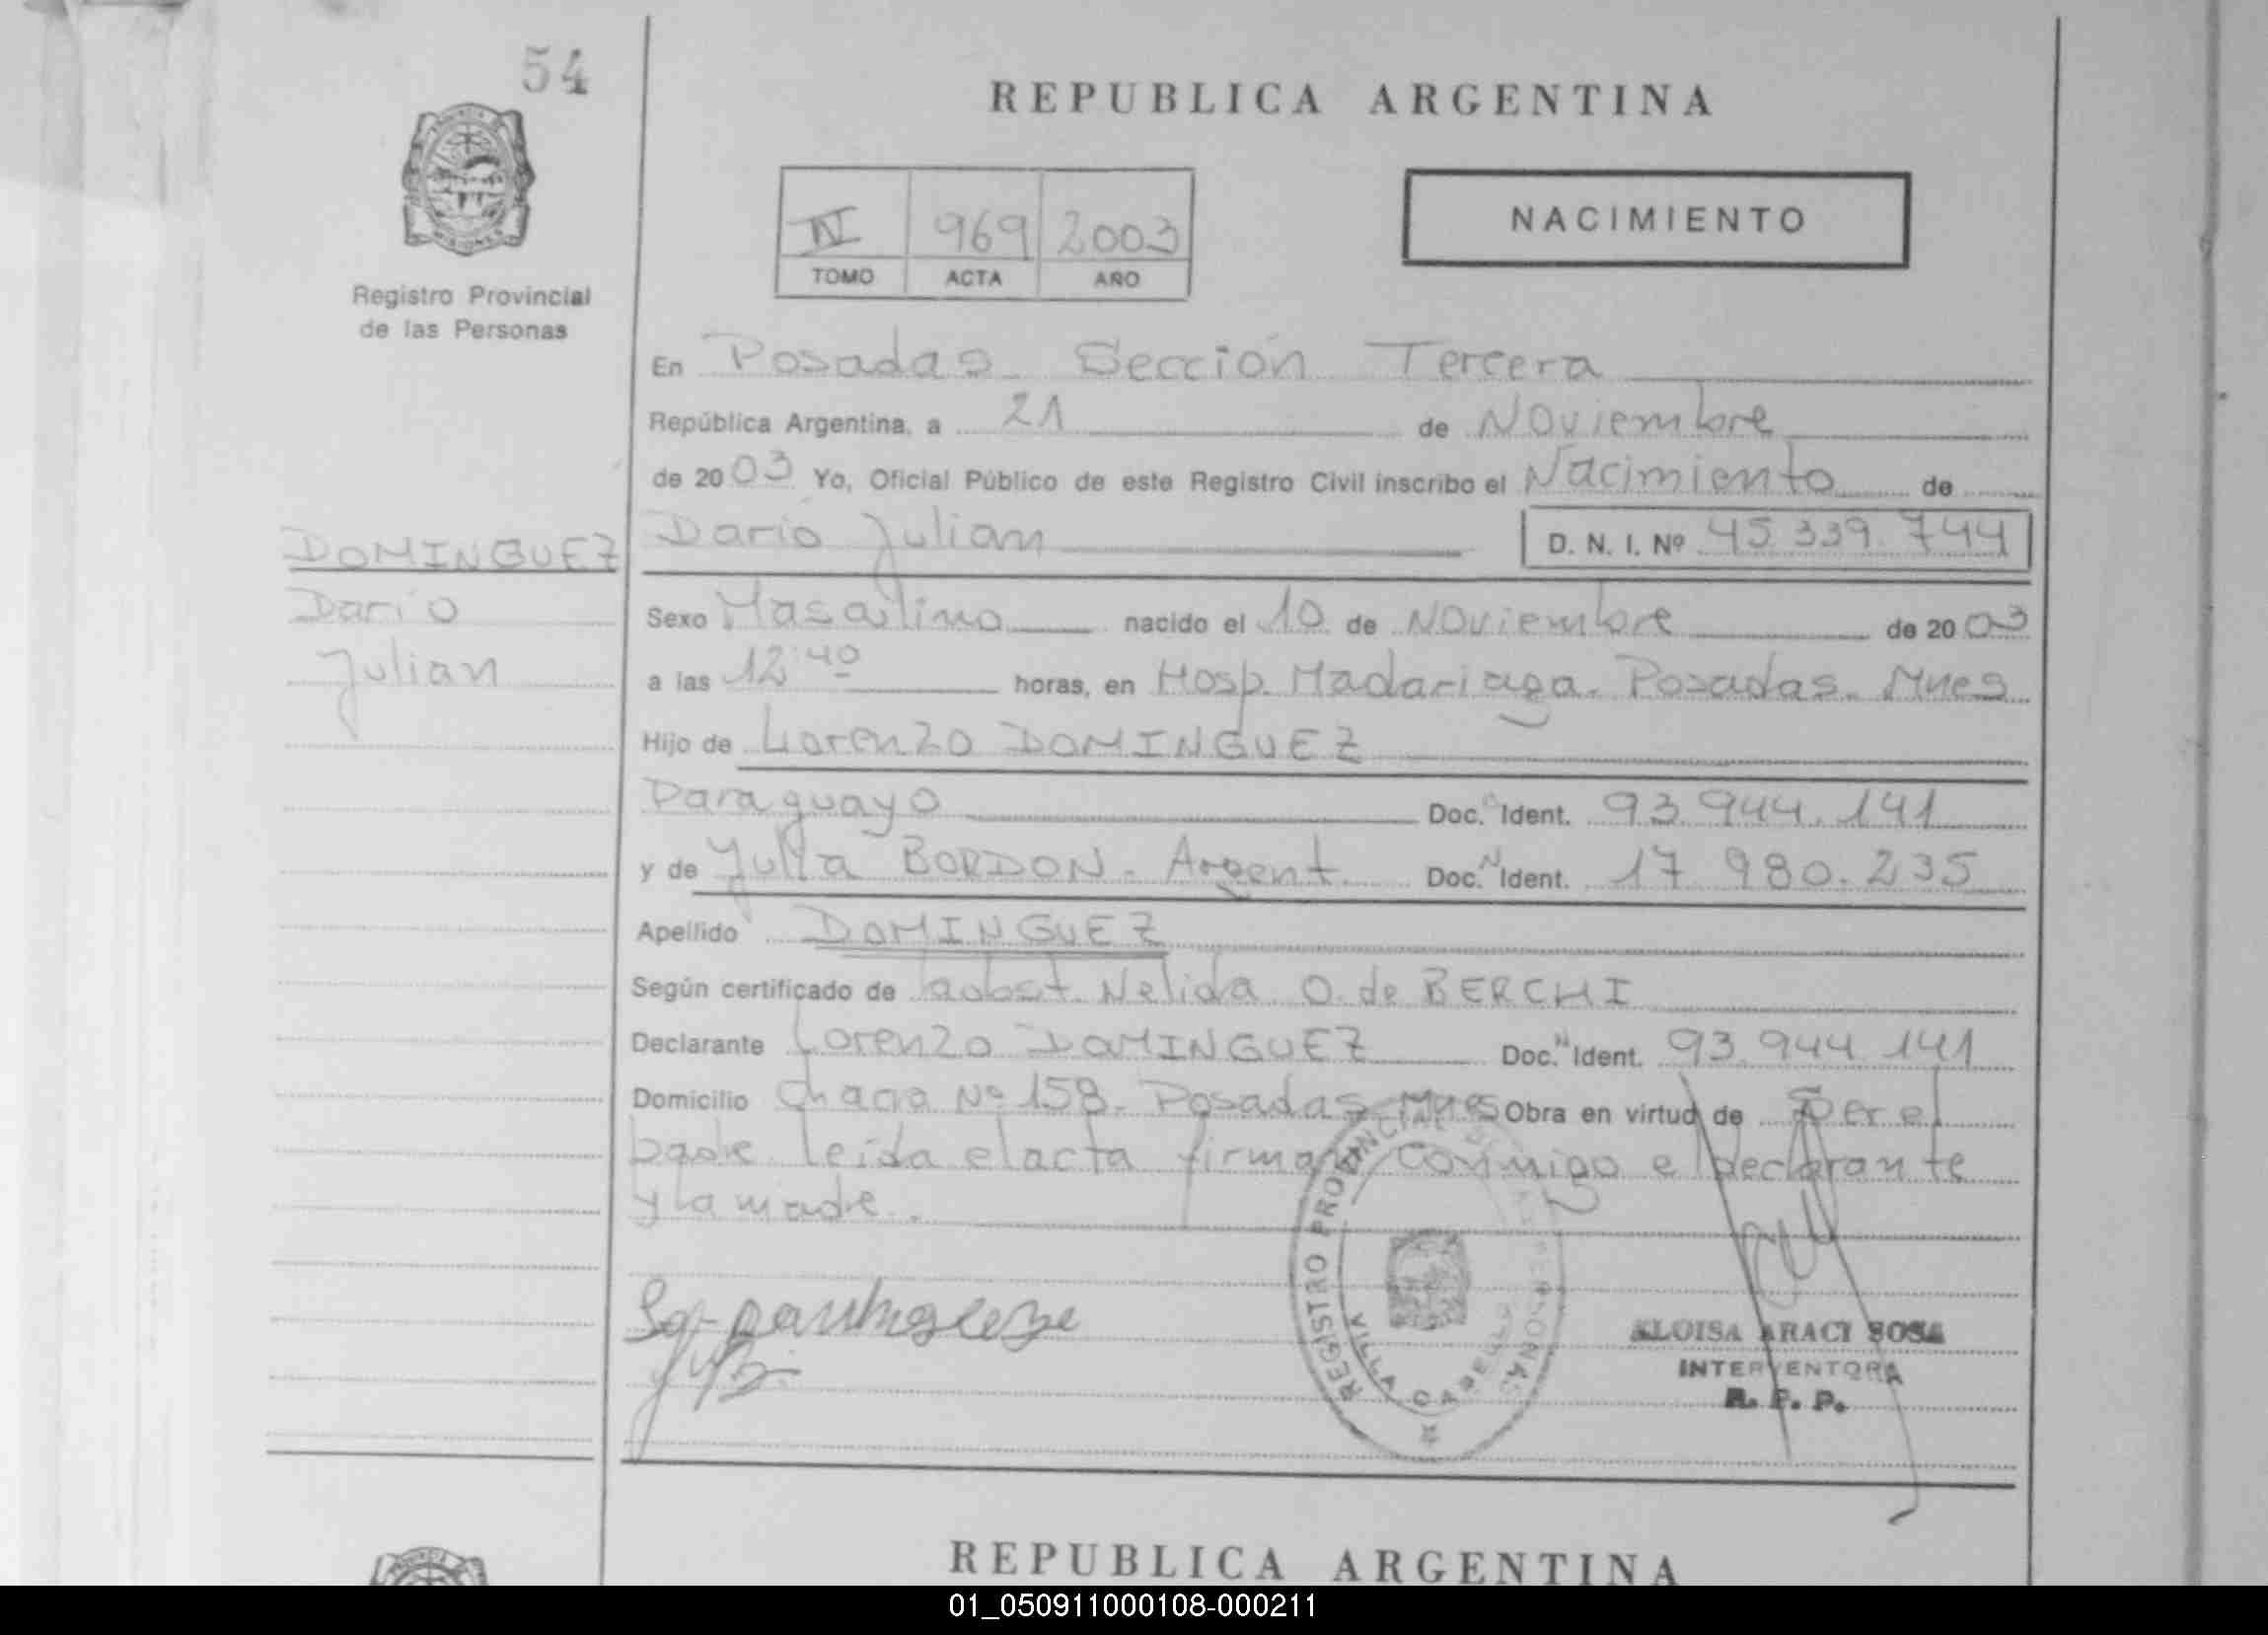 54
REPUBLICA ARGENTINA
IV 969 2003
TOMO ACTA AÑO
NACIMIENTO
Registro Provincial
de las Personas
En Posadas. Sección Tercera
República Argentina, a 21 de Noviembre
de 2003 Yo, Oficial Público de este Registro Civil inscribo el Nacimiento de
Dario Julian D. N. I. Nº 45.339.744
DOMINGUEZ
Dario
Julian
Sexo Masculino nacido el 10 de Noviembre de 2003
a las 12:40 horas, en Hosp. Madariaga. Posadas. Mnes
Hijo de Lorenzo DOMINGUEZ
Paraguayo Doc. Ident. 93.944.141
y de Julia BORDON - Argent. Doc. Ident. 17.980.235
Apellido DOMINGUEZ
Según certificado de la obst. Nelida O. de BERCHI
Declarante Lorenzo DOMINGUEZ Doc. Ident. 93.944.141
Domicilio Chacra Nº 158. Posadas - Mnes Obra en virtud de Ser el
padre leida el acta firman conmigo el declarante
y la madre.
REGISTRO PROVINCIAL DE LAS PERSONAS
VILLA CABELLO
ELOISA ARACI SOSA
INTERVENTORA
R. P. P.
REPUBLICA ARGENTINA
01_050911000108-000211